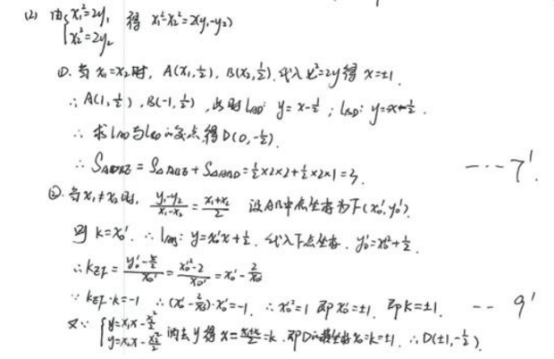 (2) 由{x₁²=2y₁, x₂²=2y₂ 得 x₁²-x₂²=2(y₁-y₂)
①. 当 x₁=x₂时, A(x₁,½), B(x₂,½). 代入 x²=2y得 x=±1
∴ A(1,½), B(-1,½), 此时 l_AD: y=x-½; l_BD: y=-x-½.
∴ 求l_AD与l_BD的交点得D(0,-½).
∴ S_ADBE = S_△ABE + S_△ABD = ½×2×2+½×2×1=3. ---- 7'.
②. 当 x₁≠x₂时, (y₁-y₂)/(x₁-x₂) = (x₁+x₂)/2 设AB中点坐标为F(x₀',y₀').
则 k=x₀'. ∴ l_AB: y=x₀'x+½. 代入F点坐标. y₀'=x₀'²+½.
∴ k_EF = (y₀'-5/2)/x₀' = (x₀'²-2)/x₀' = x₀'-2/x₀'
∵ k_EF·k=-1 ∴ (x₀'-2/x₀')·x₀'=-1. ∴ x₀'²=1 即 x₀'=±1. 即k=±1. -- 9'
又∵ {y=x₁x-x₁²/2, y=x₂x-x₂²/2 消去y得 x=(x₁+x₂)/2=k. 即D 横坐标x₀=k=±1. ∴ D(±1,-½).